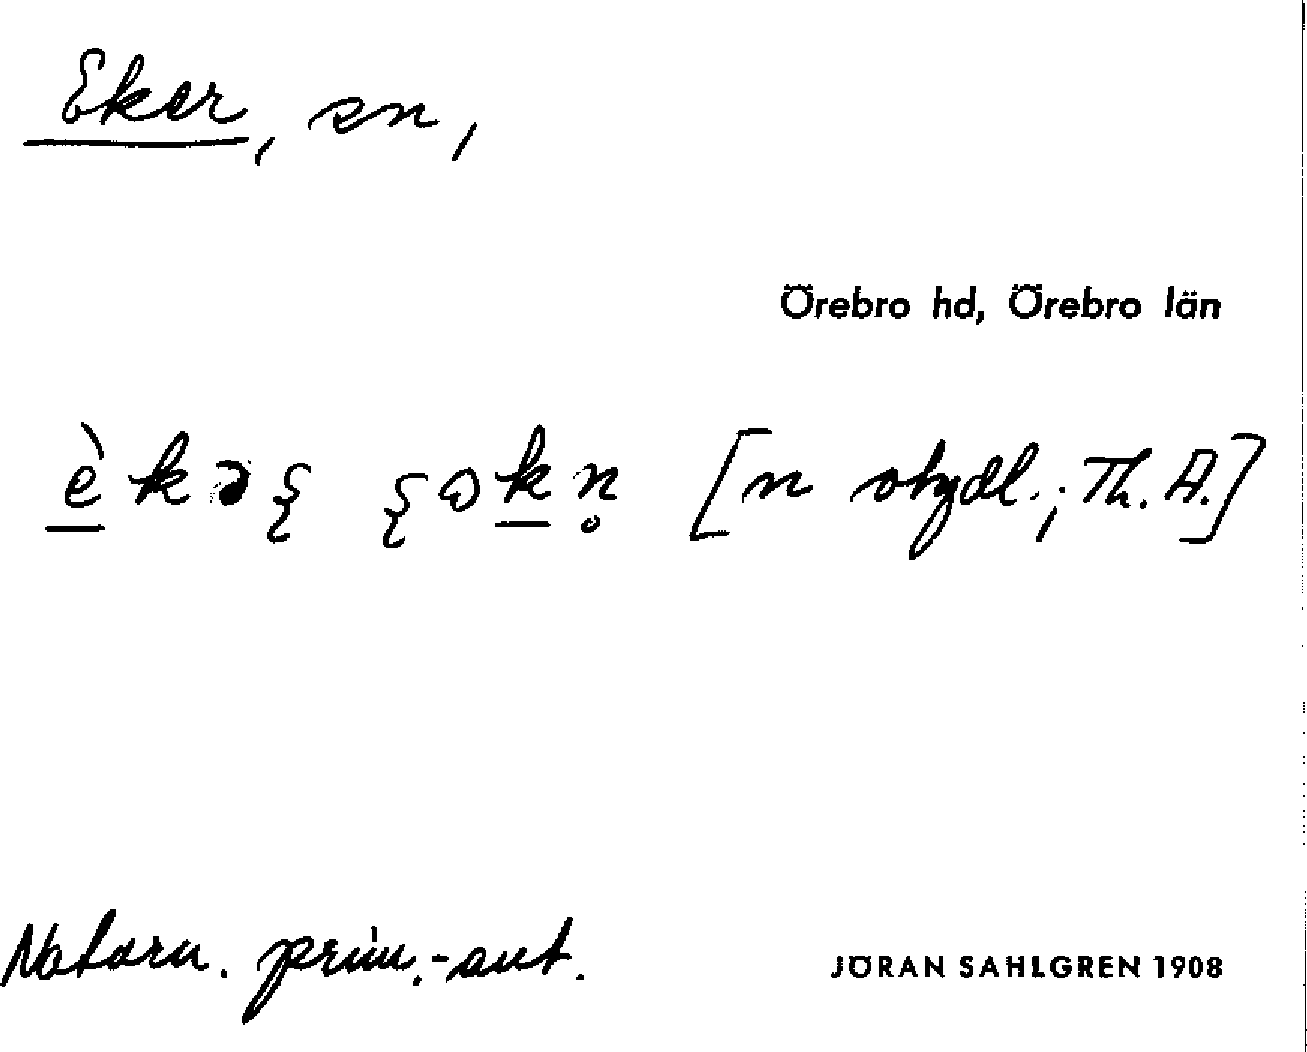 Eker, sn,
Örebro hd, Örebro län
èkəʂ ʂɷkn̥ [n otydl.; Th. A.]
Naturn. prim.-ant.
JÖRAN SAHLGREN 1908